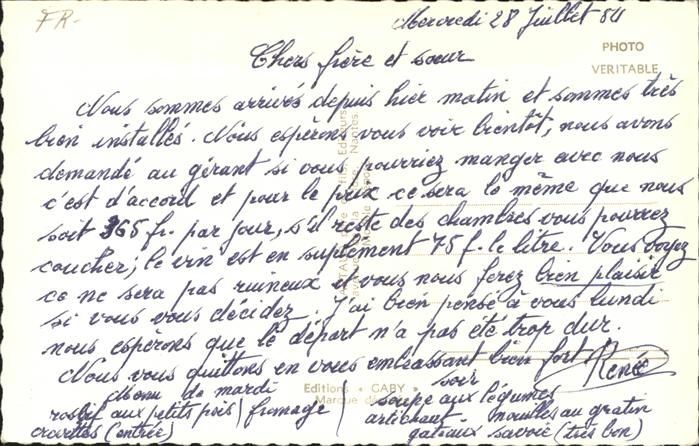 FR-
Mercredi 28 Juillet 54
PHOTO
VERITABLE
Chers frère et soeur
Nous sommes arrivés depuis hier matin et sommes très
bien installés. Nous espérons vous voir bientôt, nous avons
demandé au gérant si vous pourriez manger avec nous
c'est d'accord et pour le prix ce sera le même que nous
soit 365 fr. par jour, s'il reste des chambres vous pourriez
coucher; le vin est en suplément 75 f. le litre. Vous voyez
ce ne sera pas ruineux et vous nous ferez bien plaisir
si vous vous décidez. J'ai bien pensé à vous lundi
nous espérons que le départ n'a pas été trop dur.
Nous vous quittons en vous embrassant bien fort René
Editions « GABY »
Marque
menu de mardi soir
rosbif aux petits pois) fromage soupe aux légumes
crevettes (entrée) artichaut nouilles au gratin
gateaux savoie (très bon)